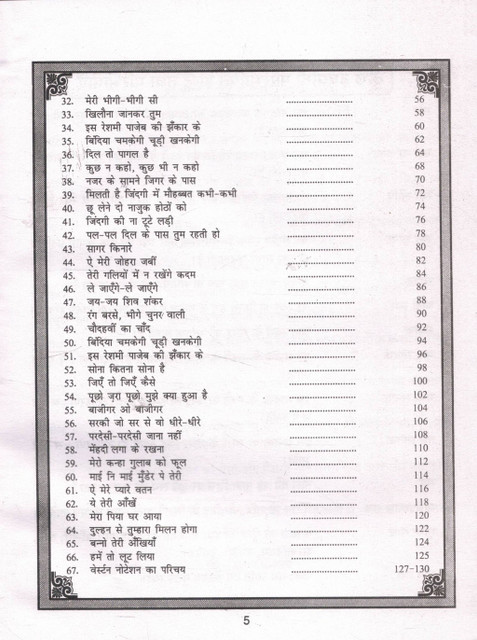 32. मेरी भीगी-भीगी सी ........................ 56
33. खिलौना जानकर तुम ........................ 58
34. इस रेशमी पाजेब की झँकार के ........................ 60
35. बिंदिया चमकेगी चूड़ी खनकेगी ........................ 62
36. दिल तो पागल है ........................ 64
37. कुछ न कहो, कुछ भी न कहो ........................ 68
38. नजर के सामने जिगर के पास ........................ 70
39. मिलती है जिंदगी में मौहब्बत कभी-कभी ........................ 72
40. छू लेने दो नाजुक होठों को ........................ 74
41. जिंदगी की ना टूटे लड़ी ........................ 76
42. पल-पल दिल के पास तुम रहती हो ........................ 78
43. सागर किनारे ........................ 80
44. ऐ मेरी जोहरा जबीं ........................ 82
45. तेरी गलियों में न रखेंगे कदम ........................ 84
46. ले जाएँगे-ले जाएँगे ........................ 86
47. जय-जय शिव शंकर ........................ 88
48. रंग बरसे, भीगे चुनर वाली ........................ 90
49. चौदहवीं का चाँद ........................ 92
50. बिंदिया चमकेगी चूड़ी खनकेगी ........................ 94
51. इस रेशमी पाजेब की झँकार के ........................ 96
52. सोना कितना सोना है ........................ 98
53. जिएँ तो जिएँ कैसे ........................ 100
54. पूछो ज़रा पूछो मुझे क्या हुआ है ........................ 102
55. बाजीगर ओ बाजीगर ........................ 104
56. सरकी जो सर से वो धीरे-धीरे ........................ 106
57. परदेसी-परदेसी जाना नहीं ........................ 108
58. मेंहदी लगा के रखना ........................ 110
59. मेरो कन्हा गुलाब को फूल ........................ 112
60. माई नि माई मुँडेर पे तेरी ........................ 114
61. ऐ मेरे प्यारे वतन ........................ 116
62. ये तेरी आँखें ........................ 118
63. मेरा पिया घर आया ........................ 120
64. दुल्हन से तुम्हारा मिलन होगा ........................ 122
65. बन्नो तेरी अँखियाँ ........................ 124
66. हमें तो लूट लिया ........................ 125
67. वेर्स्टन नोटेशन का परिचय ........................ 127-130
5